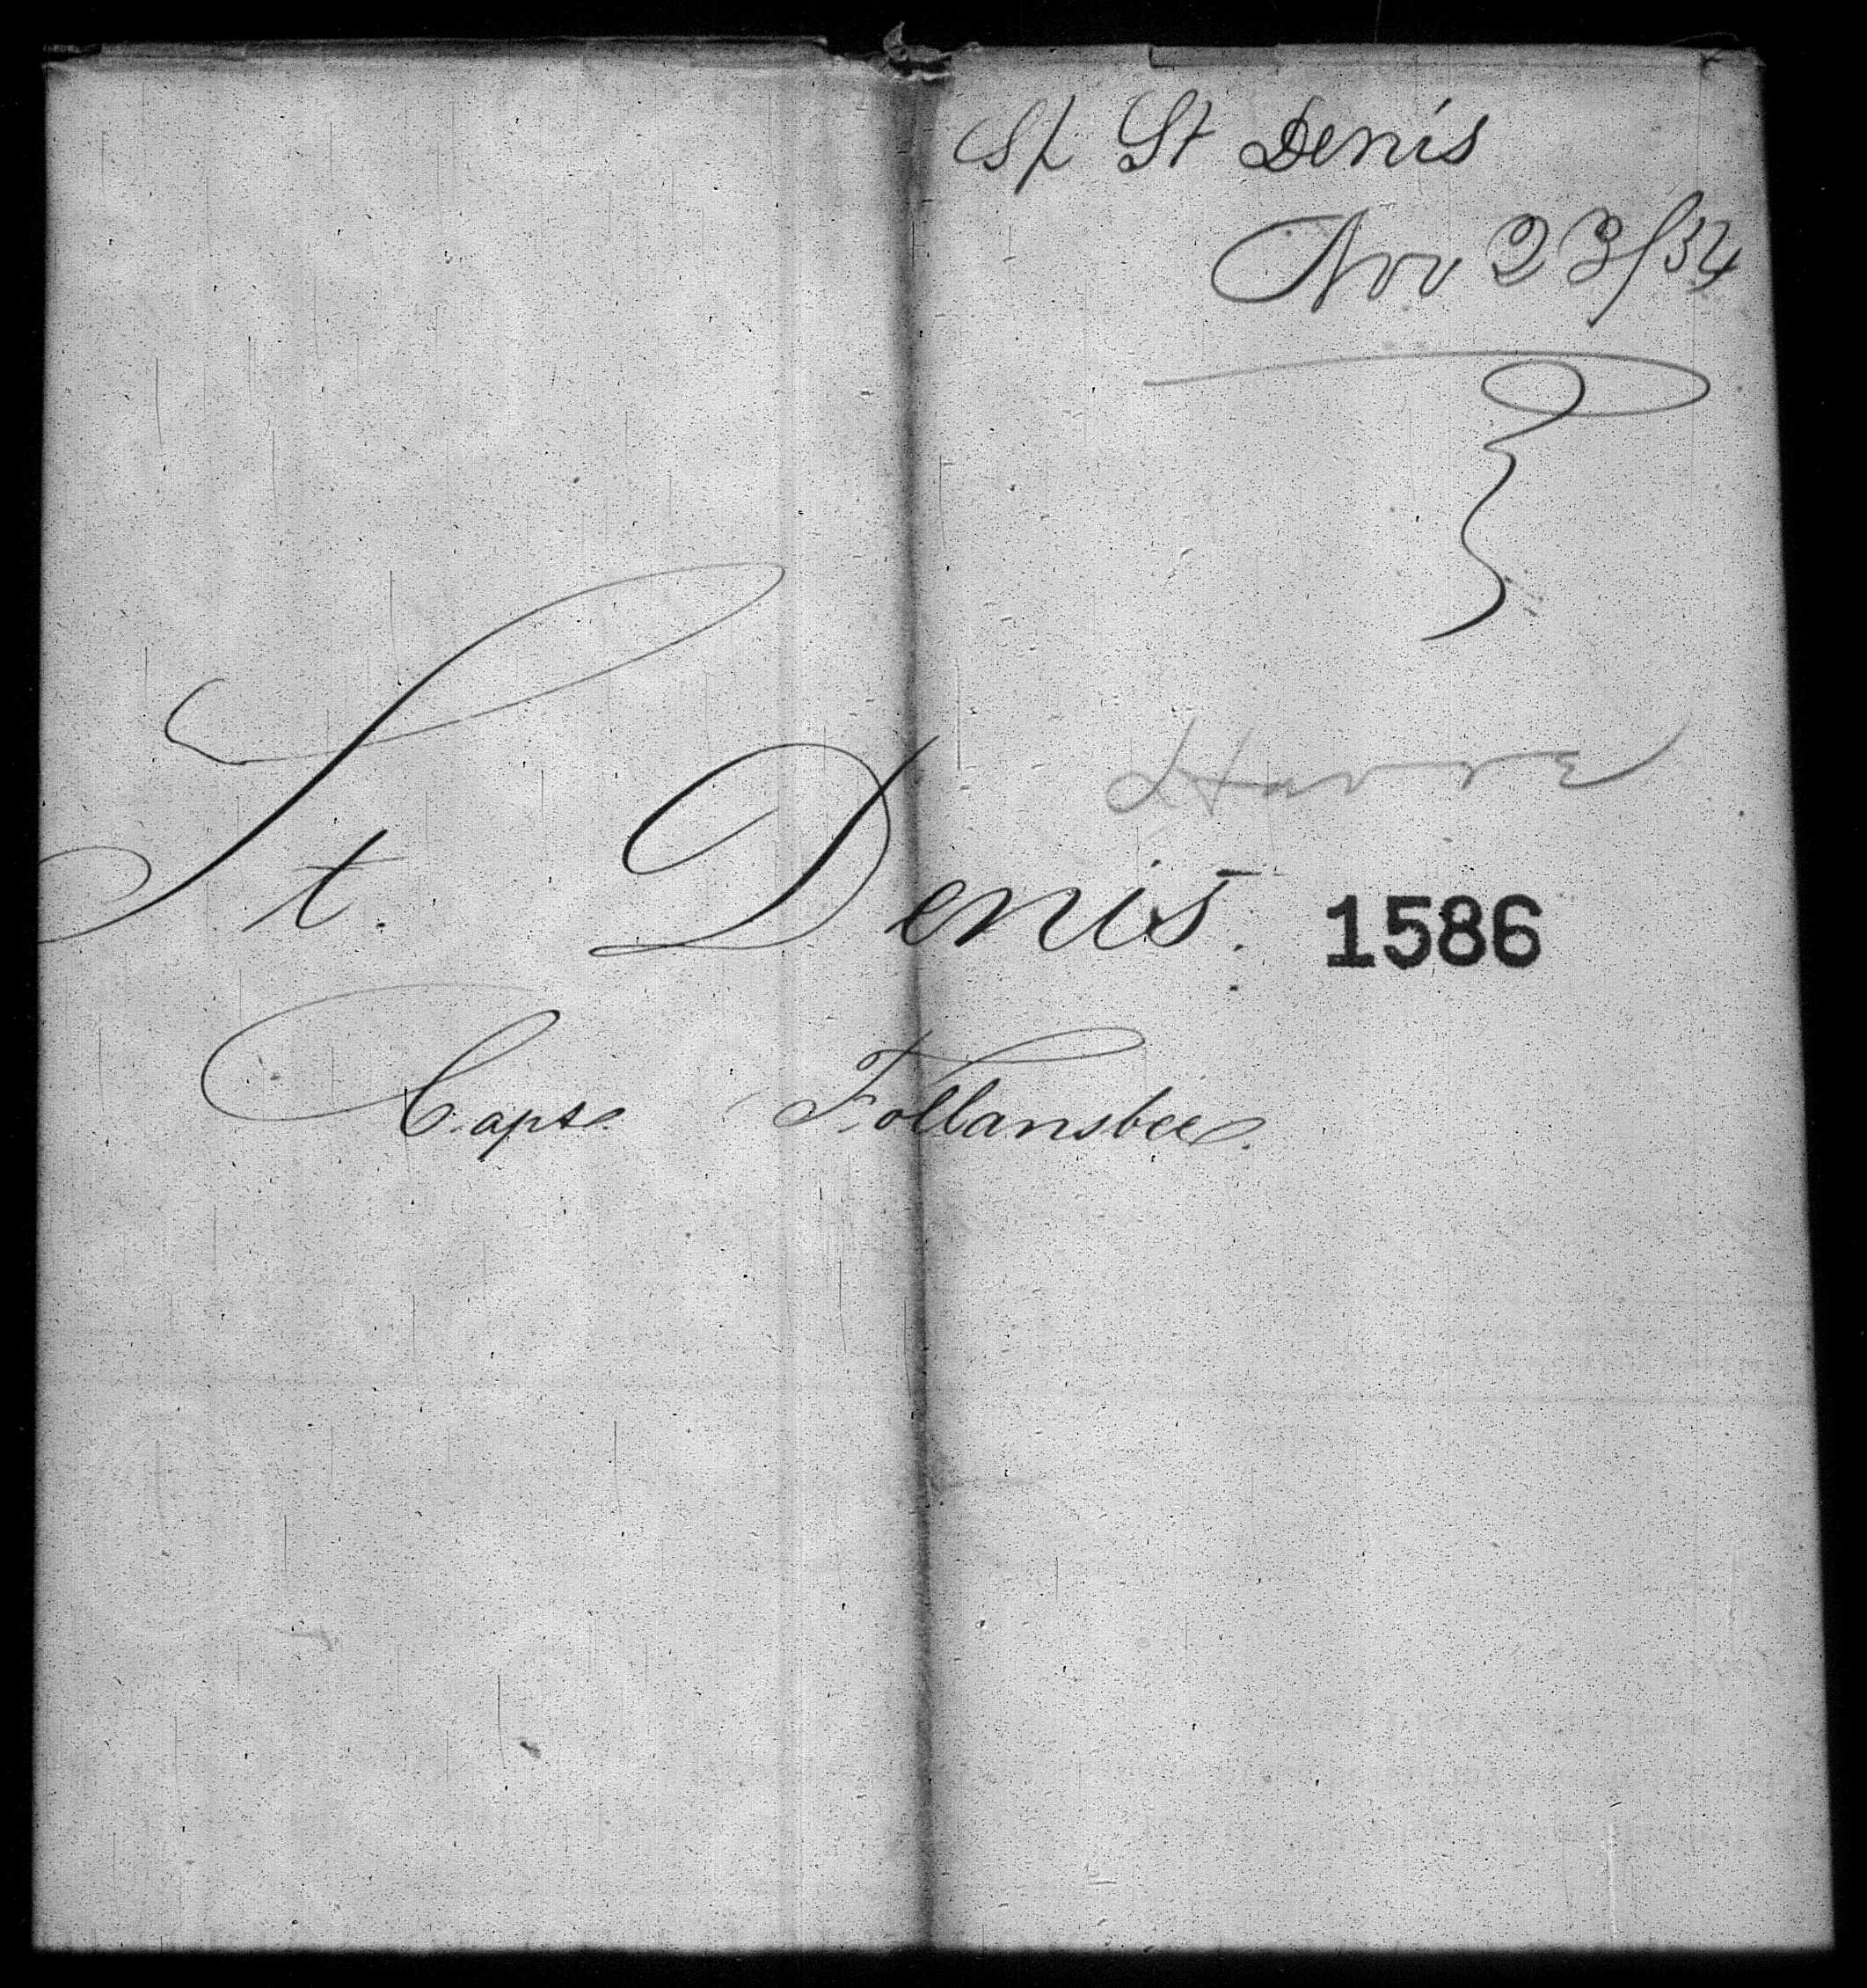 Sp St Denis
Nov 23/54
Havre
St. Denis. 1586
Capt. Follansbee.